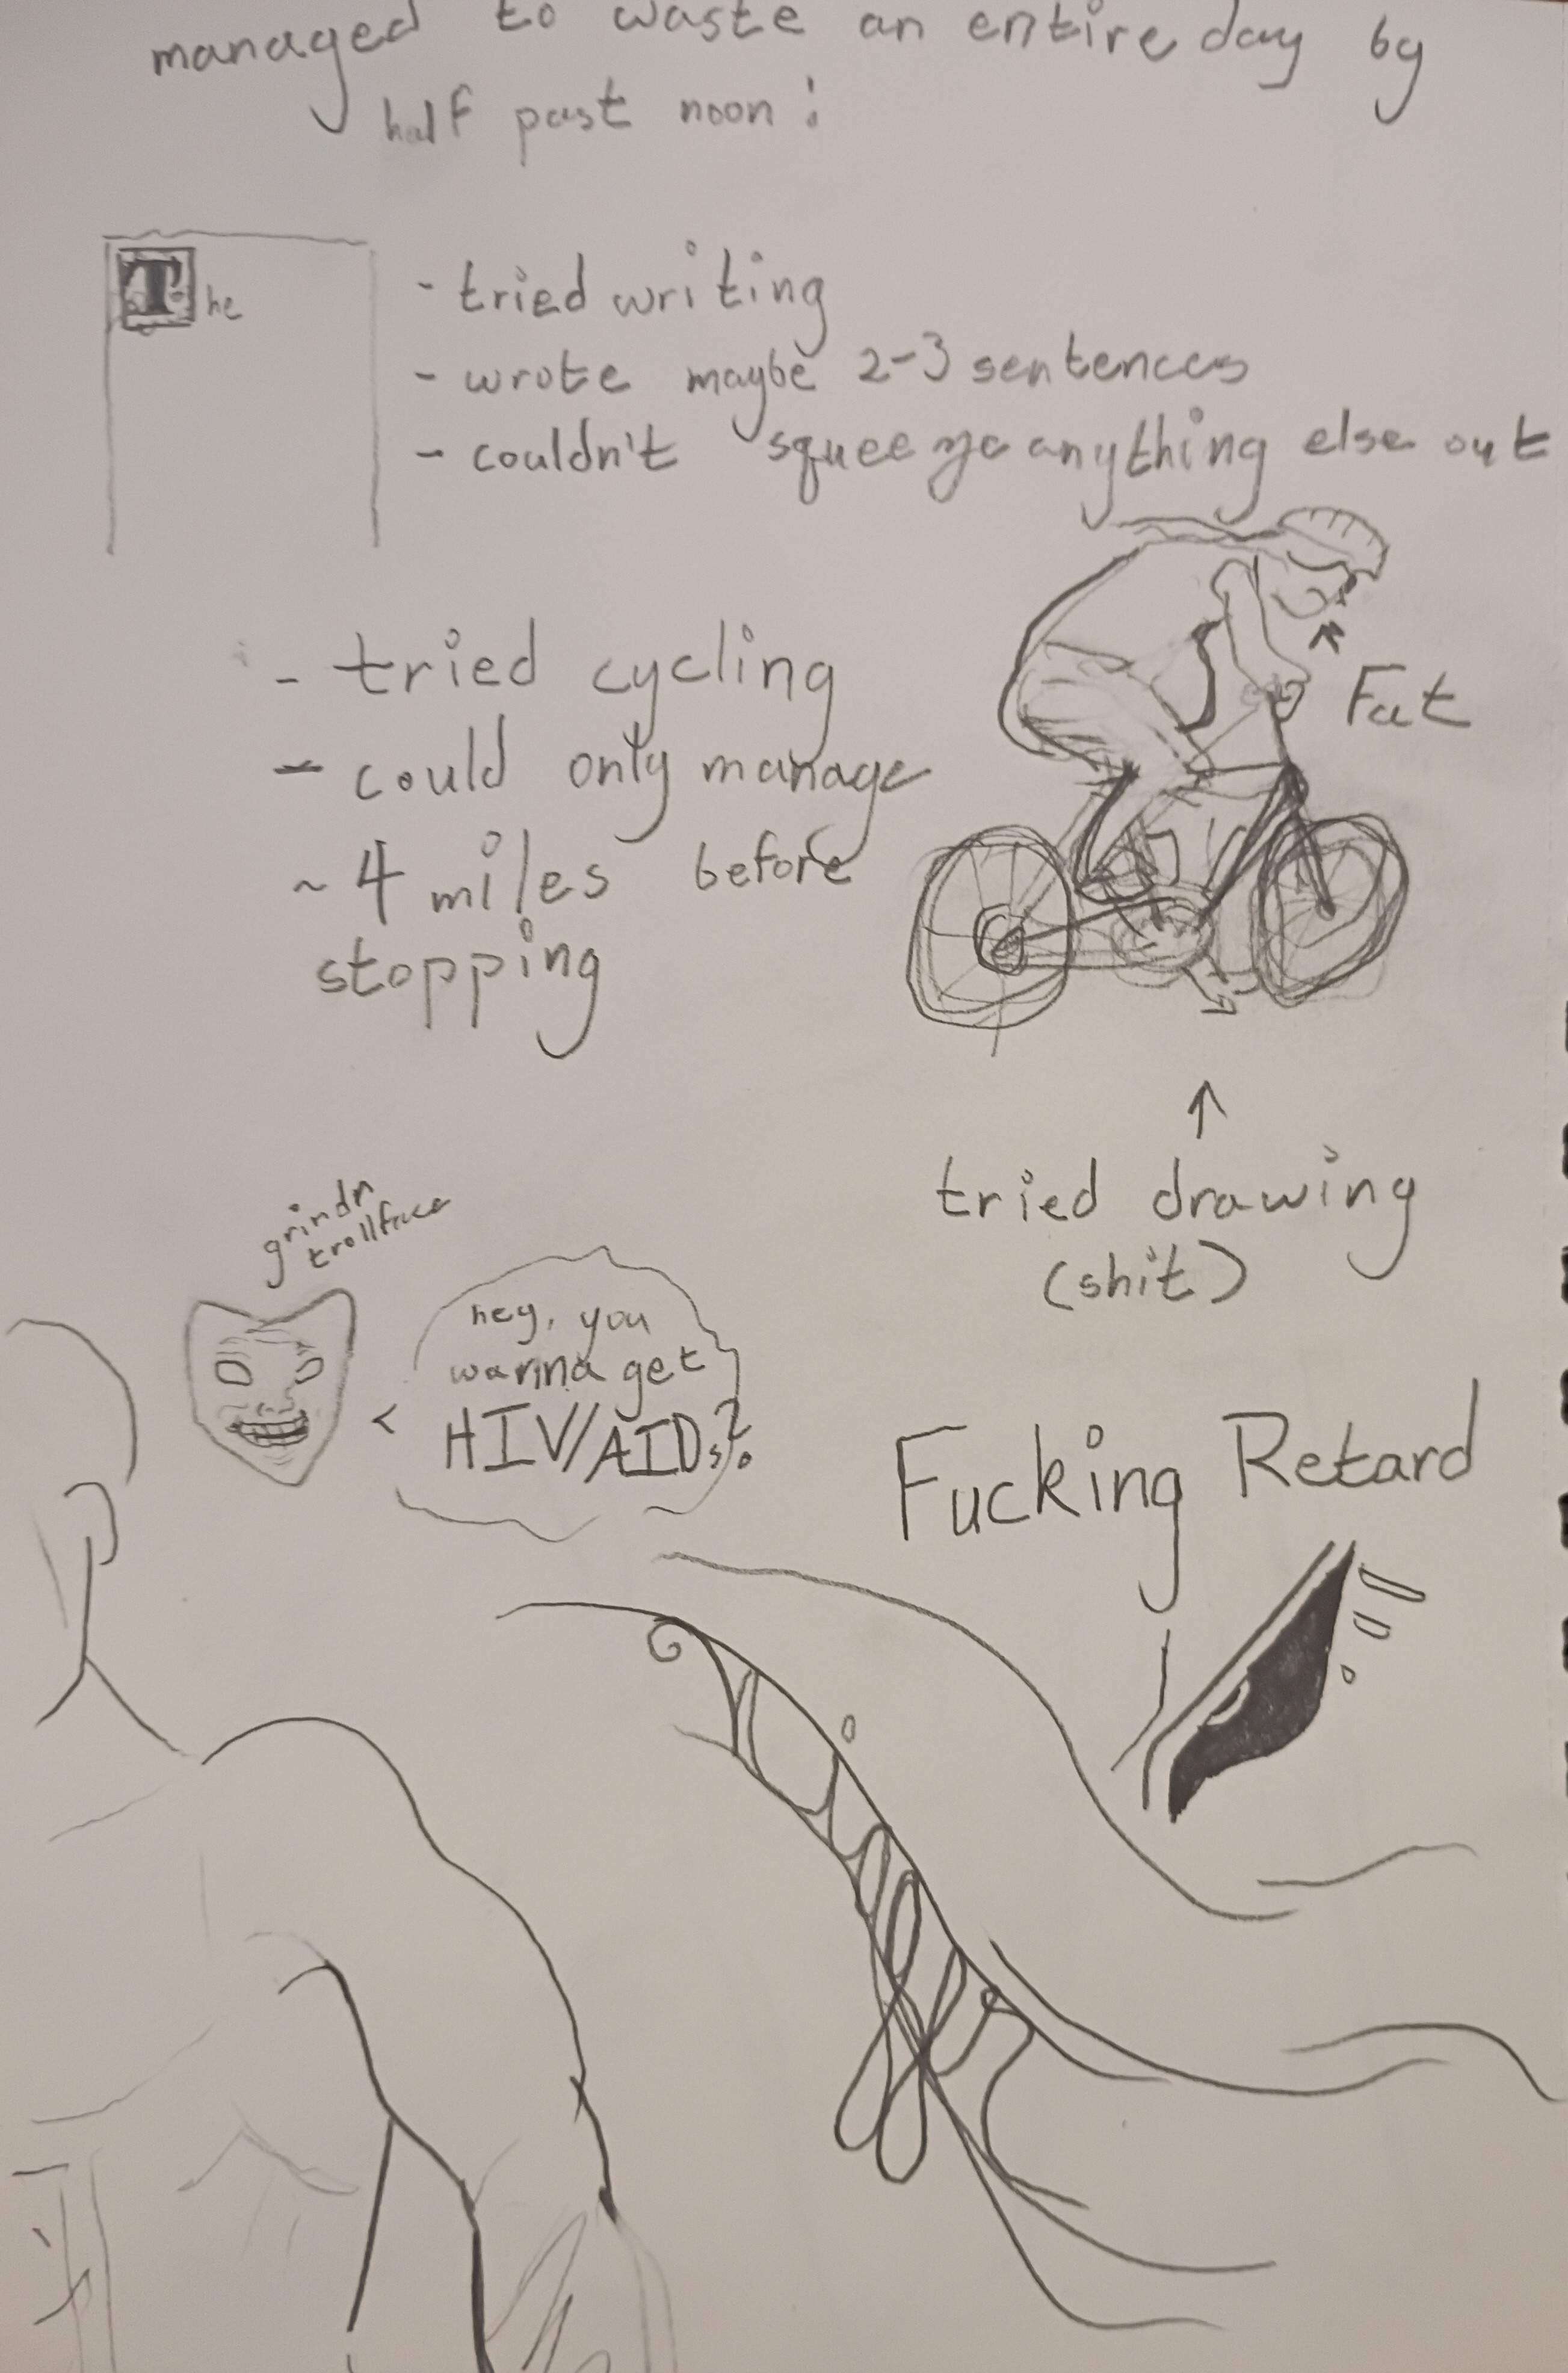 managed to waste an entire day by
half past noon:
The
- tried writing
- wrote maybe 2-3 sentences
- couldn't squeeze anything else out
- tried cycling
- could only manage
~ 4 miles before
stopping
Fat
↑
tried drawing
(shit)
grindr
trollface
hey, you
wanna get
HIV/AIDs?
Fucking Retard